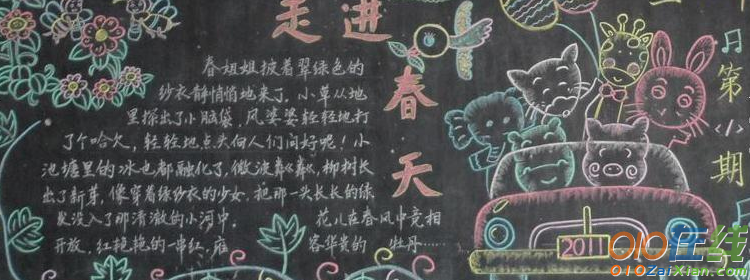 走进
春天
春姐姐披着翠绿色的
纱衣静悄悄地来了。小草从地
里探出了小脑袋,风婆婆轻轻地打
了个哈欠,轻轻地点头向人们问好呢!小
池塘里的冰也都融化了,微波,柳树长
出了新芽,像穿着绿纱衣的少女,把那一头长长的绿
发没入了那清澈的小河中。 花儿在春风中竞相
开放,红艳艳的一串红, 容华贵的 牡丹……
第
期
2011
010在线
010ZaiXian.com